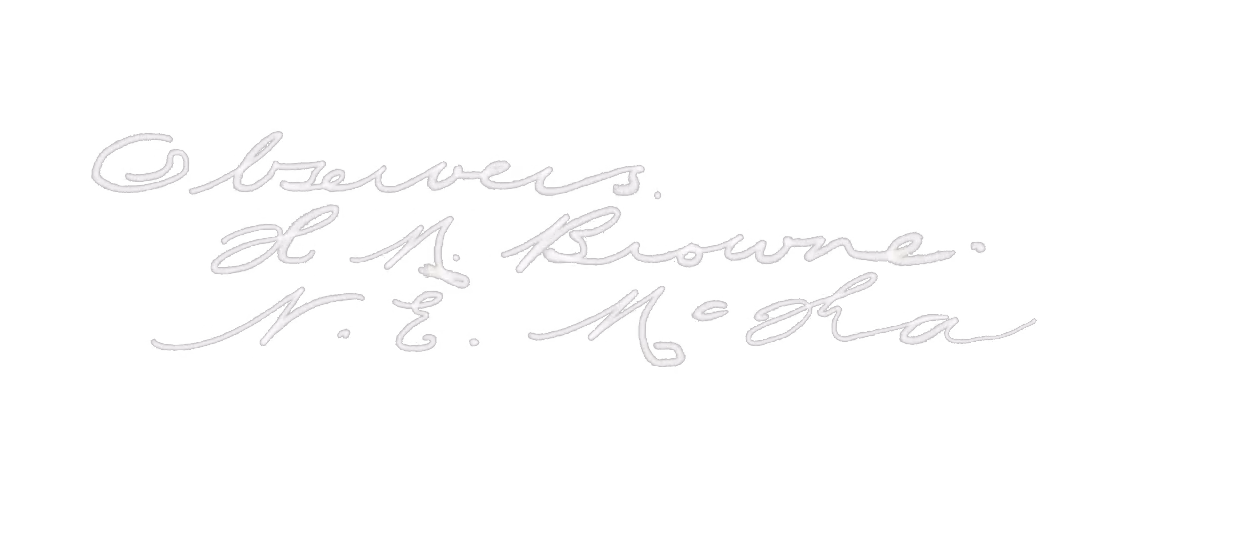 Observers.
H M. Browne.
N. E. McKa